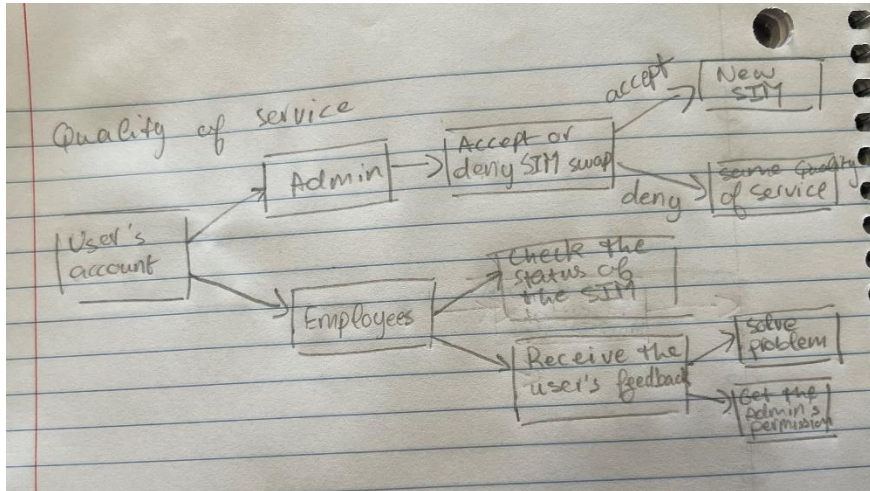 Quality of service
User's
account
Admin
Accept or
deny SIM swap
accept
New
SIM
deny
same quality
of service
Employees
Check the
status of
the SIM
Receive the
user's feedback
solve
problem
Get the
Admin's
permission